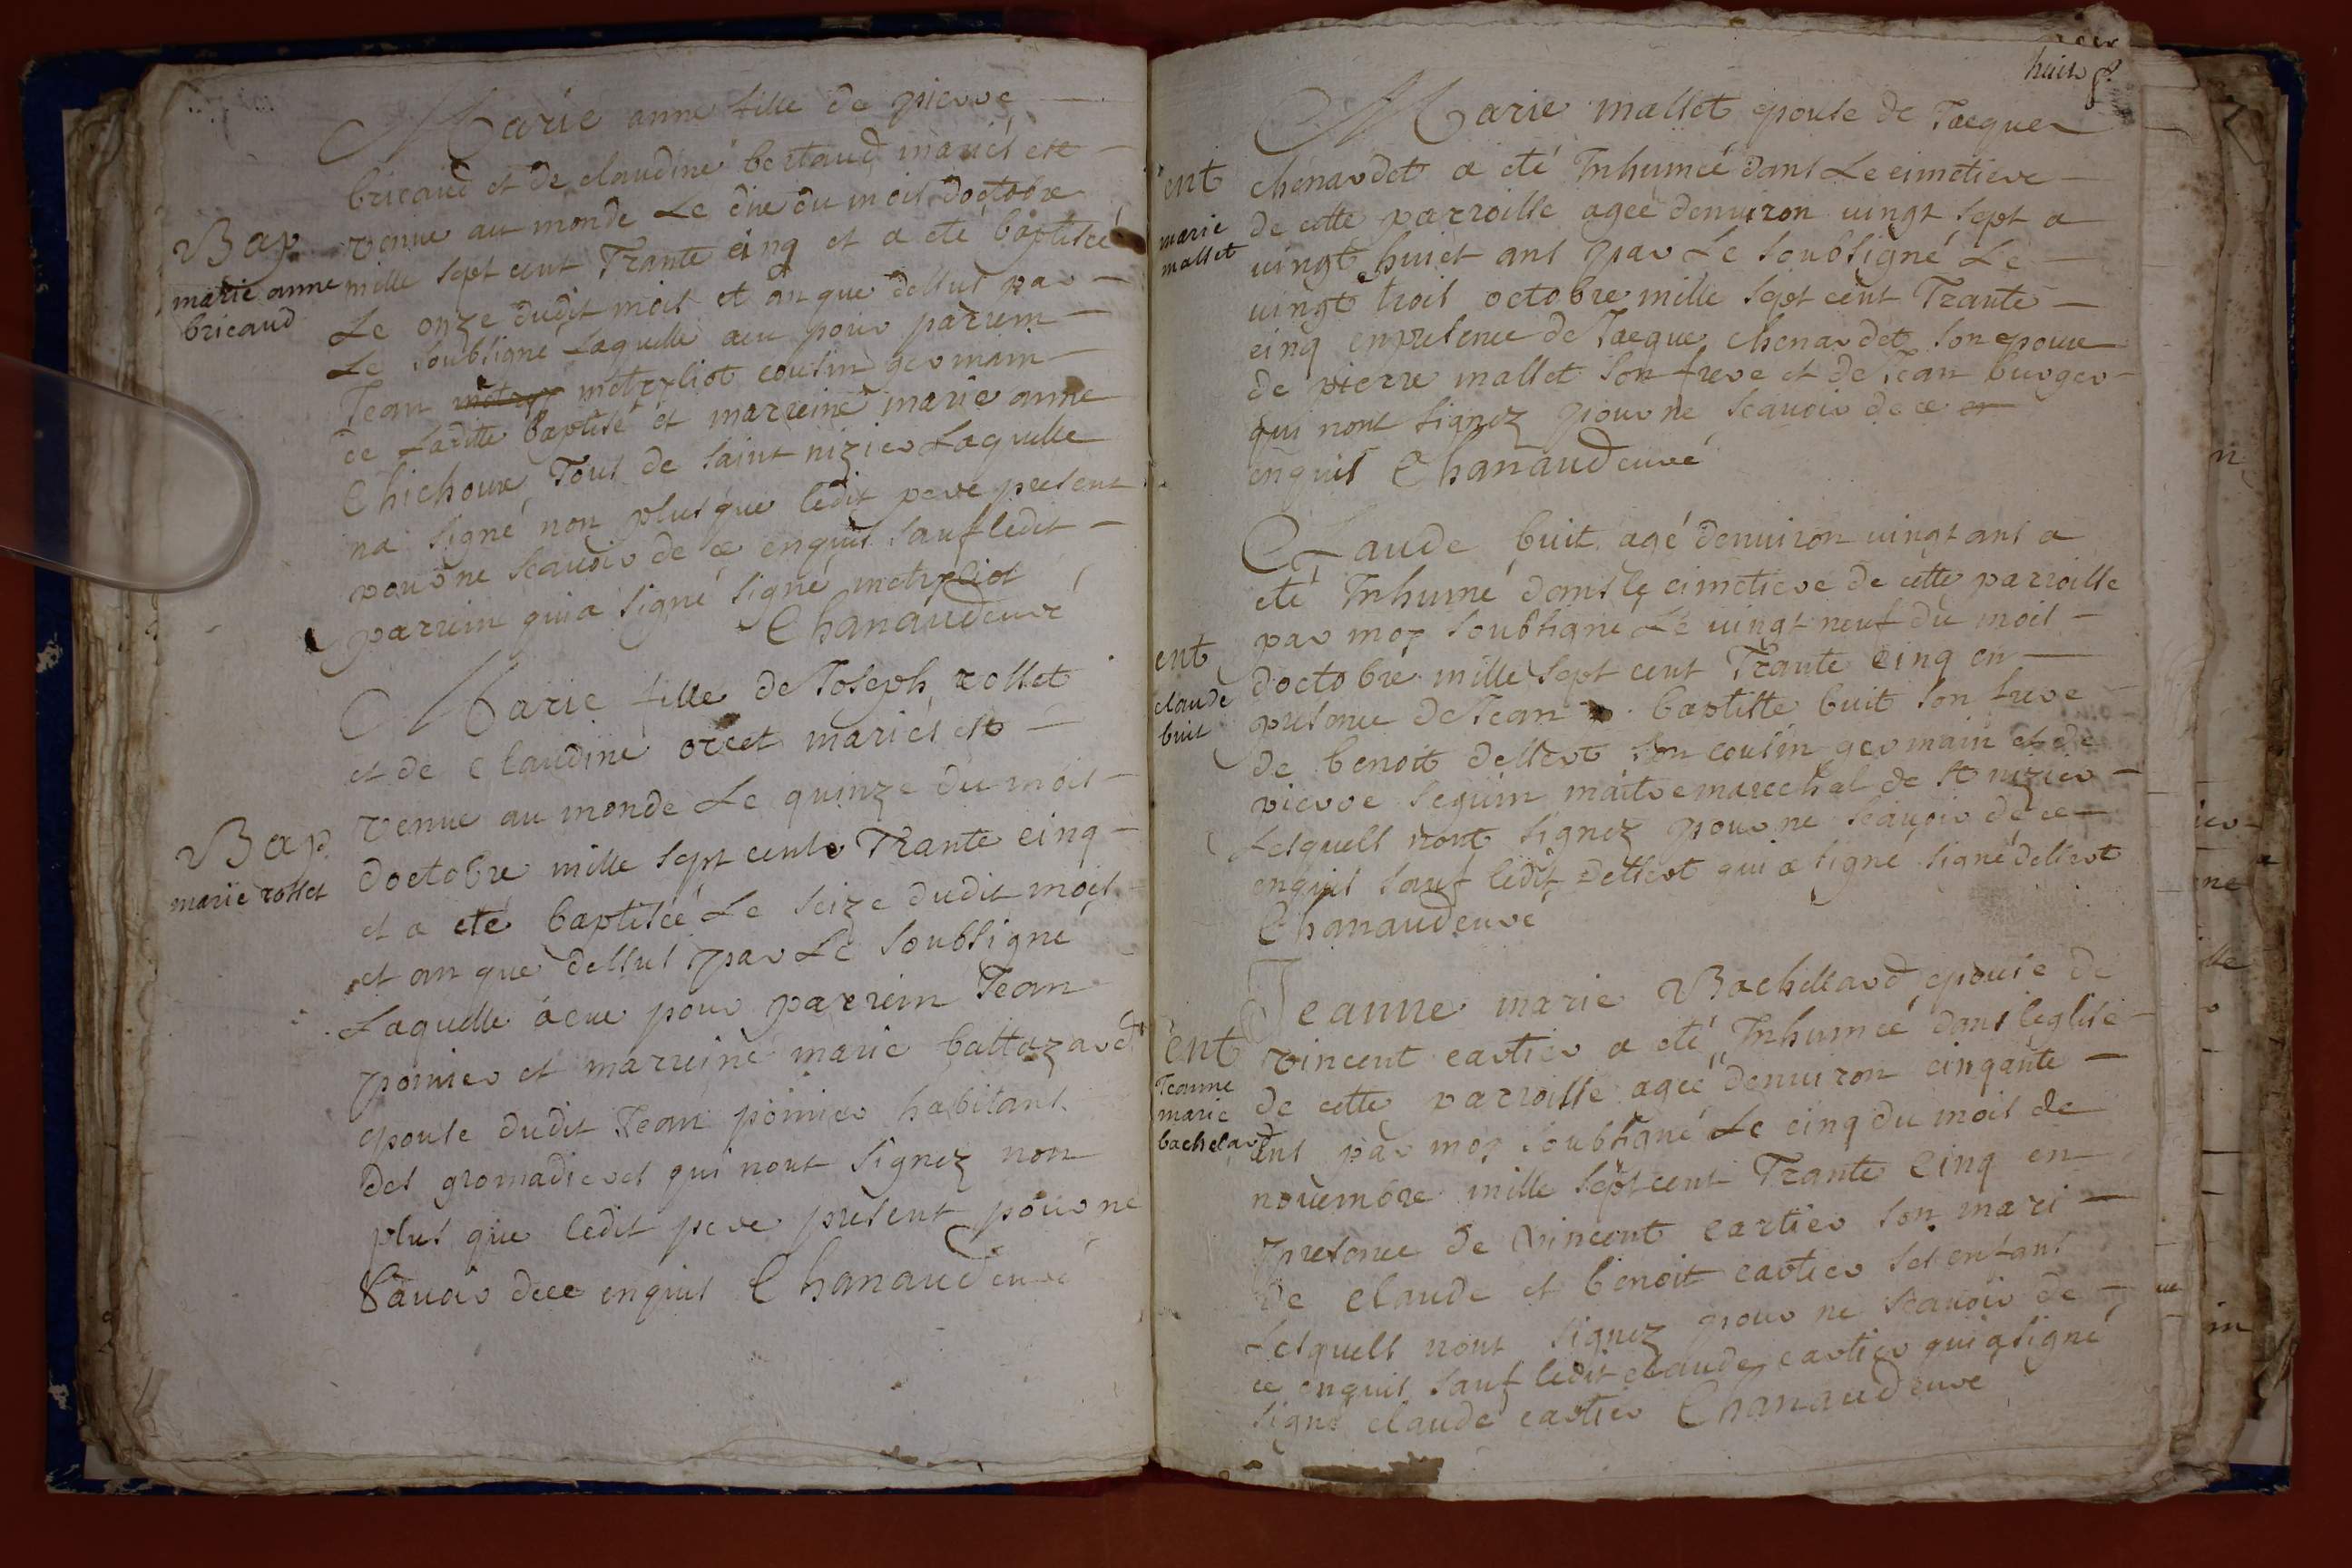 Marie anne fille de pierre
bricaud et de claudine bertaud mariés est
Bap
venue au monde Le dix du mois doctobre
marie anne
bricaud
mille sept cent Trante cinq et a eté baptisée
Le onze dudit mois et an que dessus par
Le soubsigné Laquelle aeu pour parrein
Jean cousin germain
de Ladtte baptisé et marreine marie anne
Chichoux Tous de saint nizier Laquelle
na signé non plus que ledit pere present
pour ne scauoir de ce enquis sauf ledit
parrein qui a signé signé
Chanaudeuvé
Marie fille de Joseph rollet
et de claudine orcet mariés est
Bap
marie rollet
venue au monde Le quinze du mois
doctobre mille sept cents Trante cinq
et a eté baptisée Le seize dudit mois
et an que dessus par Le soubsigné
Laquelle aeue pour parrein Jean
poinier et marreine marie baltazard
epouse dudit Jean poinier habitans
des gromadieres qui nont signez non
plus que ledit pere present pour ne
sauoir dece enquis Chanaudeuvé
huit
Marie mallet epouse de Jacque
ent
marie
mallet
chenardet a eté Inhumée dans Le cimetiere
de cette parroisse agée denuiron uingt sept a
uingt huict ans par Le soubsigné Le
uingt trois octobre mille sept cent Trante
cinq enpresence de Jacque chenardet son epoux
de pierre mallet son frere et de Jean burger
qui nont signez pour ne scauoir de ce
enquis Chanaudeuvé
Claude buit agé denuiron uingt ans a
eté Inhumé dans le cimetiere de cette parroisse
par moy soubsigné Le uingt neuf du mois
ent
claude
buit
doctobre mille sept cent Trante cinq en
presence de Jean baptiste buit son frere
de benoit dessert son cousin germain et de
pierre seguin maitre marechal de st nizier
Lesquells nont signez pour ne scauoir de ce
enquis sauf ledit dessert qui a signé signé dessert
Chanaudeuvé
Jeanne marie Bachellard epouse de
ent
Jeanne
marie
bachelard
vincent cartier a eté Inhumée dans leglise
de cette parroisse agée denuiron cinqante
ans par moy soubsigné Le cinq du mois de
nouembre mille sept cent Trante cinq en
presence de vincent cartier son mari
de claude et benoit cartier ses enfans
Lesquells nont signez pour ne scauoir de
ce enquis sauf ledit claude cartier qui a signé
signé claude cartier Chanaudeuvé